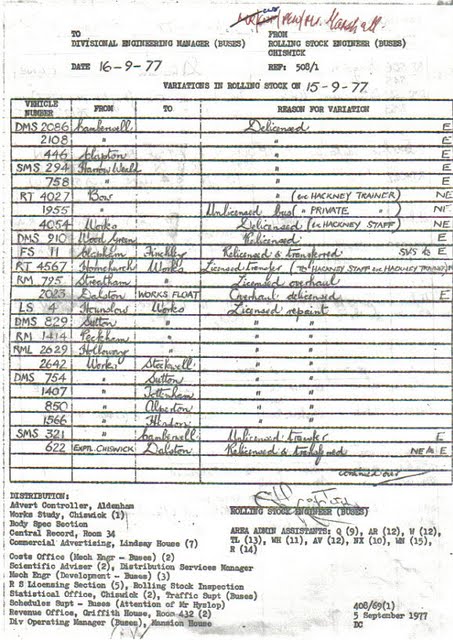 Marshall.
TO FROM
DIVISIONAL ENGINEERING MANAGER (BUSES) ROLLING STOCK ENGINEER (BUSES)
CHISWICK
DATE 16-9-77 REF: 508/1
VARIATIONS IN ROLLING STOCK ON 15-9-77
VEHICLE NUMBER FROM TO REASON FOR VARIATION
DMS 2086 Camberwell Delicensed E
2108 " " E
446 Clapton " E
SMS 294 Harrow Weald " E
758 " " E
RT 4027 Bow " (ex HACKNEY TRAINER) NE
1955 " Unlicensed bus (" PRIVATE " ) NE
4054 Works Delicensed (ex HACKNEY STAFF) NE
DMS 910 Wood Green Relicensed E
FS 11 Finchley Relicensed & transferred E
RT 4567 Hornchurch Works Licensed transfer (TO HACKNEY STAFF ex HACKNEY TRAINER)
RM 795 Streatham " Licensed overhaul
2023 Dalston WORKS FLOAT Overhaul delicensed E
LS 4 Hounslow Works Licensed repaint
DMS 829 Sutton " " "
RM 1414 Peckham " " "
RML 2629 Holloway " " "
2642 Works Stockwell " "
DMS 754 " Sutton " "
1407 " Tottenham " "
850 " Alperton " "
1566 " Hendon " "
SMS 321 " Camberwell Unlicensed transfer E
622 EXPTL. CHISWICK Dalston Relicensed & transferred E
continued over
DISTRIBUTION:
Advert Controller, Aldenham
Works Study, Chiswick (1) ROLLING STOCK ENGINEER (BUSES)
Body Spec Section
Central Record, Room 34 AREA ADMIN ASSISTANTS: Q (9), AR (12), W (12),
Commercial Advertising, Lindsay House (7) TL (13), WH (11), AV (12), NX (10), WN (15),
R (14)
Costs Office (Mech Engr - Buses) (2)
Scientific Adviser (2), Distribution Services Manager
Mech Engr (Development - Buses) (3)
R S Licensing Section (5), Rolling Stock Inspection
Statistical Office, Chiswick (2), Traffic Supt (Buses)
Schedules Supt - Buses (Attention of Mr Hyslop) 408/69(1)
Revenue Office, Griffith House, Room 432 (2) 5 September 1977
Div Operating Manager (Buses), Mansion House DC